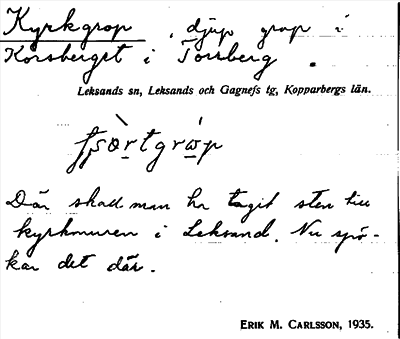 Kyrkgrop, djup grop i
Korsberget i Torsberg.
Leksands sn, Leksands och Gagnefs tg, Kopparbergs län.
Där skall man ha tagit sten till
kyrkmuren i Leksand. Nu spö-
kar det där.
ERIK M. CARLSSON, 1935.